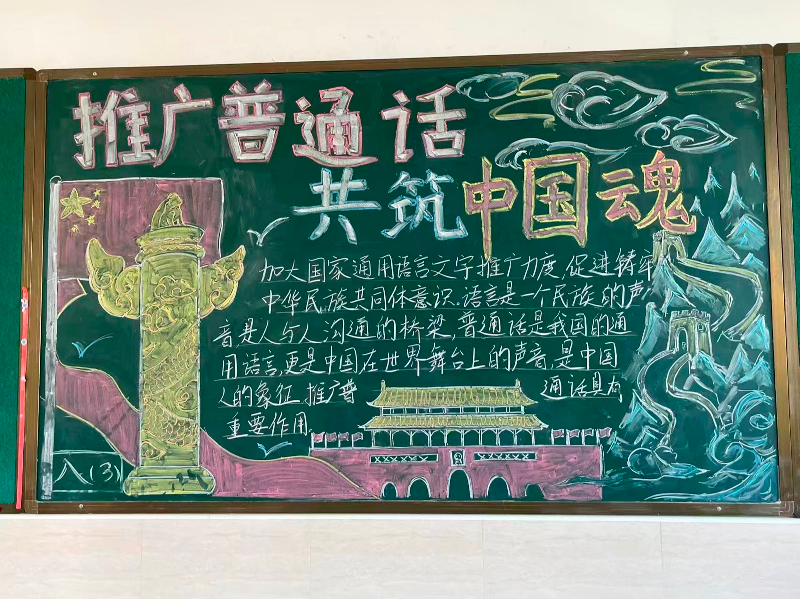 推广普通话
共筑中国魂
加大国家通用语言文字推广力度,促进铸牢
中华民族共同体意识.语言是一个民族的声
音是人与人沟通的桥梁,普通话是我国的通
用语言,更是中国在世界舞台上的声音,是中国
人的象征.推广普 通话具有
重要作用.
八(3)